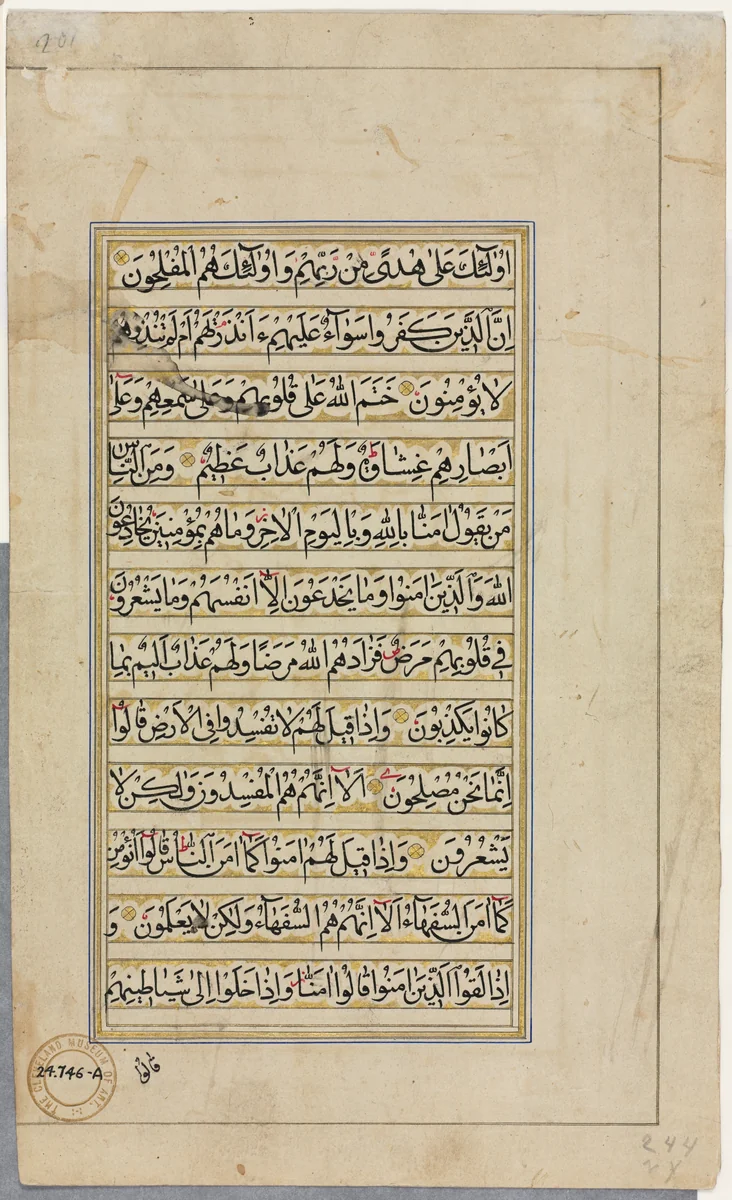 201
اُولٰٓئِكَ عَلٰى هُدًى مِنْ رَبِّهِمْ وَاُولٰٓئِكَ هُمُ الْمُفْلِحُونَ
اِنَّ الَّذِينَ كَفَرُوا سَوَآءٌ عَلَيْهِمْ ءَاَنْذَرْتَهُمْ اَمْ لَمْ تُنْذِرْهُمْ
لَا يُؤْمِنُونَ خَتَمَ اللّٰهُ عَلٰى قُلُوبِهِمْ وَعَلٰى سَمْعِهِمْ وَعَلٰٓى
اَبْصَارِهِمْ غِشَاوَةٌ وَلَهُمْ عَذَابٌ عَظِيمٌ وَمِنَ النَّاسِ
مَنْ يَقُولُ اٰمَنَّا بِاللّٰهِ وَبِالْيَوْمِ الْاٰخِرِ وَمَا هُمْ بِمُؤْمِنِينَ يُخَادِعُونَ
اللّٰهَ وَالَّذِينَ اٰمَنُوا وَمَا يَخْدَعُونَ اِلَّآ اَنْفُسَهُمْ وَمَا يَشْعُرُونَ
فِي قُلُوبِهِمْ مَرَضٌ فَزَادَهُمُ اللّٰهُ مَرَضًا وَلَهُمْ عَذَابٌ اَلِيمٌ بِمَا
كَانُوا يَكْذِبُونَ وَاِذَا قِيلَ لَهُمْ لَا تُفْسِدُوا فِي الْاَرْضِ قَالُوٓا
اِنَّمَا نَحْنُ مُصْلِحُونَ اَلَآ اِنَّهُمْ هُمُ الْمُفْسِدُونَ وَلٰكِنْ لَا
يَشْعُرُونَ وَاِذَا قِيلَ لَهُمْ اٰمِنُوا كَمَآ اٰمَنَ النَّاسُ قَالُوٓا اَنُؤْمِنُ
كَمَآ اٰمَنَ السُّفَهَآءُ اَلَآ اِنَّهُمْ هُمُ السُّفَهَآءُ وَلٰكِنْ لَا يَعْلَمُونَ وَ
اِذَا لَقُوا الَّذِينَ اٰمَنُوا قَالُوٓا اٰمَنَّا وَاِذَا خَلَوْا اِلٰى شَيَاطِينِهِمْ
قَالُوٓا
THE CLEVELAND MUSEUM OF ART
24.746-A
244